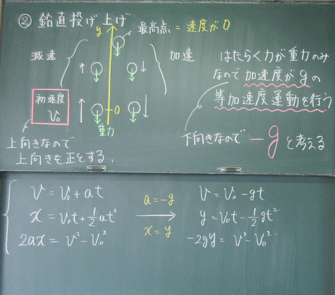 ② 鉛直投げ上げ
最高点 = 速度が0
y
減速
加速
初速度
V₀
0
重力
上向きなので
上向きを正とする。
はたらく力が重力のみ
なので加速度がgの
等加速度運動を行う
下向きなので -gと考える
V = V₀ + at
x = V₀t + ½at²
2ax = V² - V₀²
a = -g
x = y
V = V₀ - gt
y = V₀t - ½gt²
-2gy = V² - V₀²